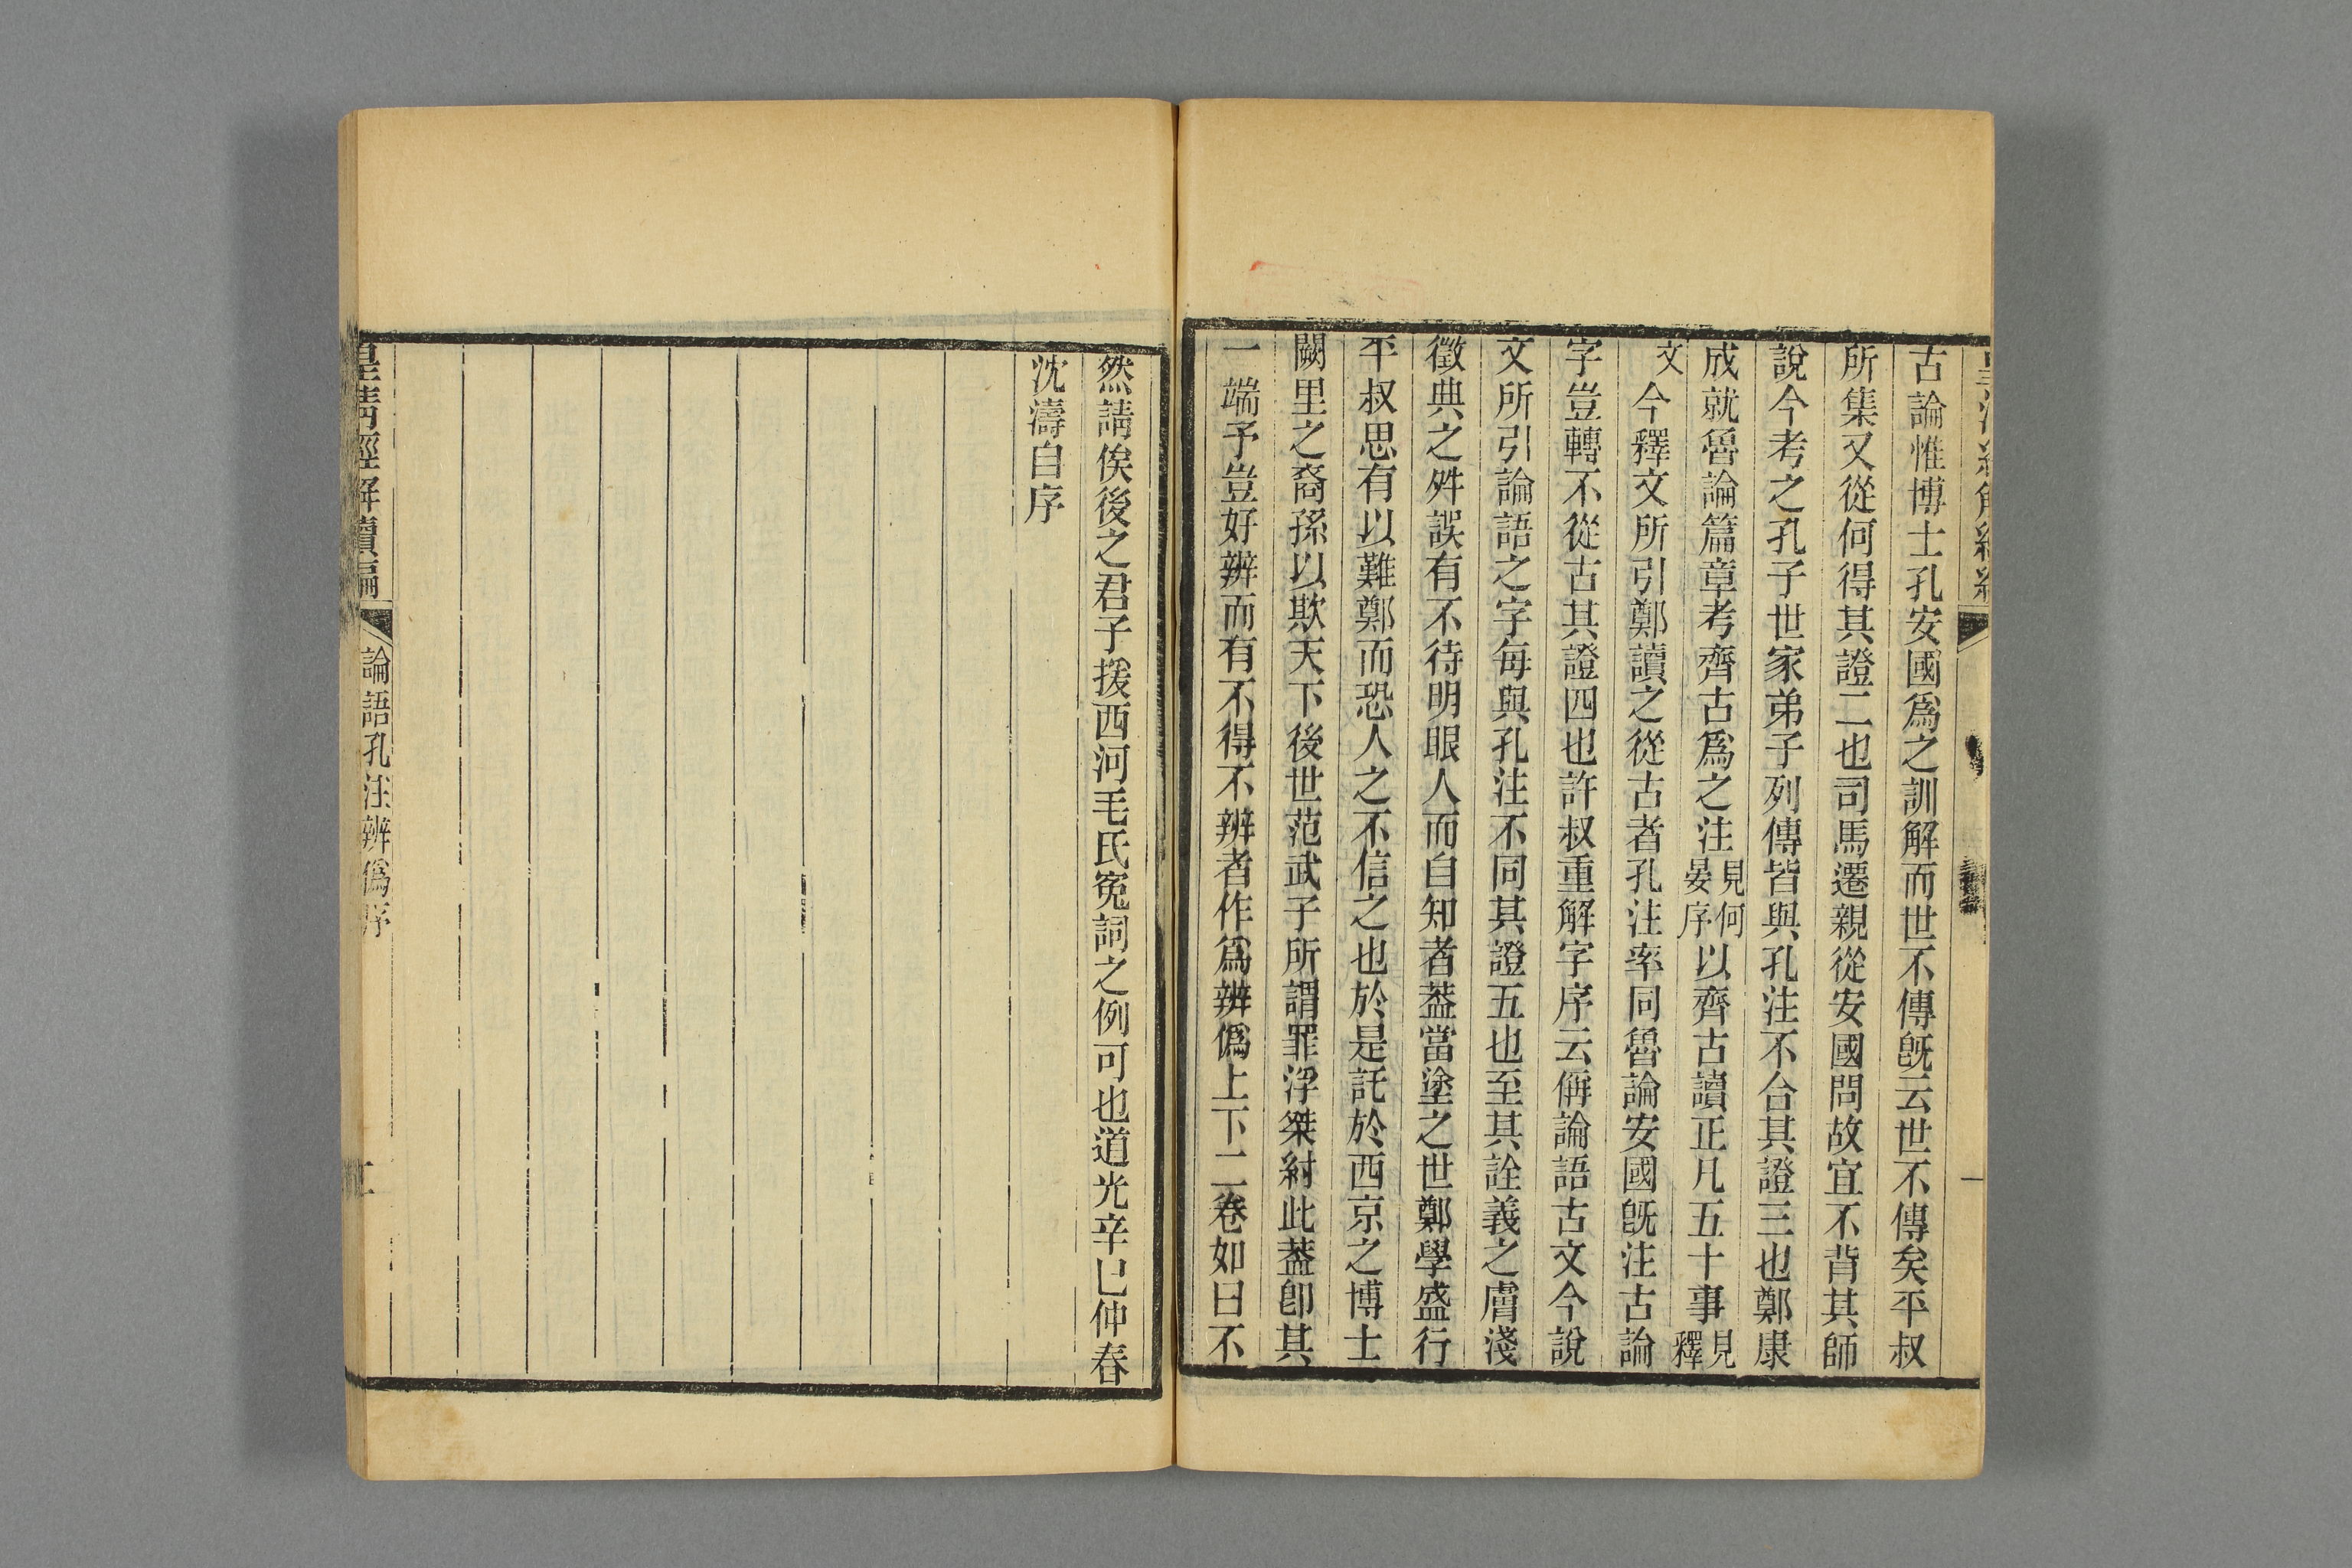 古論惟博士孔安國爲之訓解而世不傳旣云世不傳矣平叔
所集又從何得其證二也司馬遷親從安國問故宜不背其師
說今考之孔子世家弟子列傳皆與孔注不合其證三也鄭康
成就魯論篇章考齊古爲之注見何晏序以齊古讀正凡五十事見釋
文今釋文所引鄭讀之從古者孔注率同魯論安國旣注古論
字豈轉不從古其證四也許叔重解字序云偁論語古文今說
文所引論語之字每與孔注不同其證五也至其詮義之膚淺
徵典之舛誤有不待明眼人而自知者葢當塗之世鄭學盛行
平叔思有以難鄭而恐人之不信之也於是託於西京之博士
闕里之裔孫以欺天下後世范武子所謂罪浮桀紂此葢卽其
一端予豈好辨而有不得不辨者作爲辨僞上下二卷如曰不
然請俟後之君子援西河毛氏寃詞之例可也道光辛巳仲春
沈濤自序
皇淸經解續編
論語孔注辨僞序
二